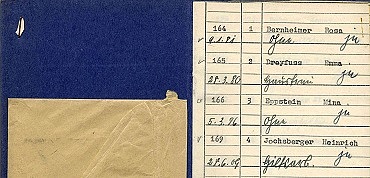 164 1 Bernheimer Rosa
9.1.81 Ohne ju
165 2 Dreyfuss Emma
28.3.80 ju
166 3 Eppstein Mina
5.3.96 Ohne ju
169 4 Jochsberger Heinrich
28.6.09 Hilfsarb. ju